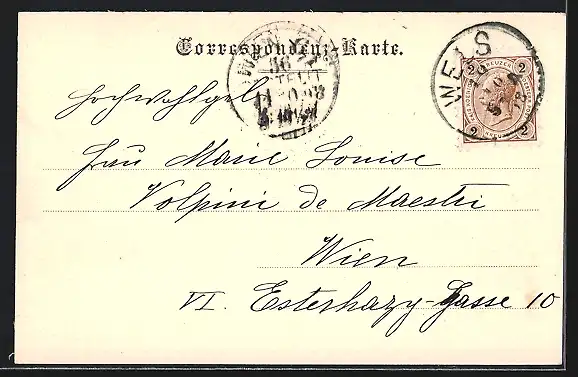 Correspondenz-Karte.
WELS
2 KREUZER 2
2 2
WIEN
Hochwohlgeb.
Frau Marie Louise
Volpini de Maestri
Wien
VI. Esterhazy-Gasse 10